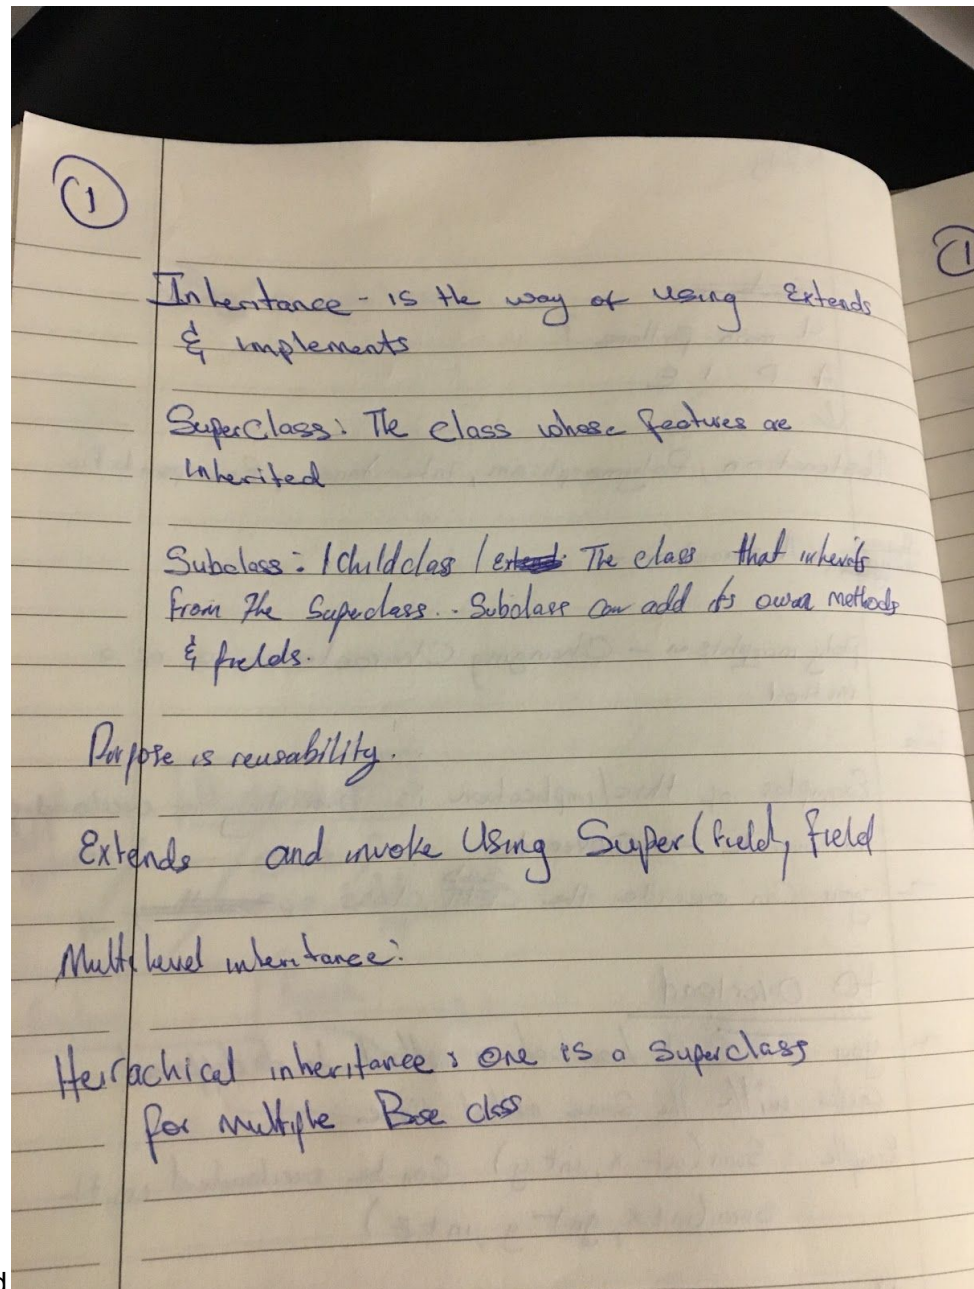 1
1
Inheritance - is the way of using Extends
& implements
SuperClass: The class whose features are
Inherited
Subclass: / Childclass / The class that inherits
from The Superclass.. Subclass can add its own methods
& fields.
Purpose is reusability.
Extends and invoke Using Super(field, field
Multilevel inheritance:
Heirachical inheritance: One is a Superclass
for Multiple Base class
d